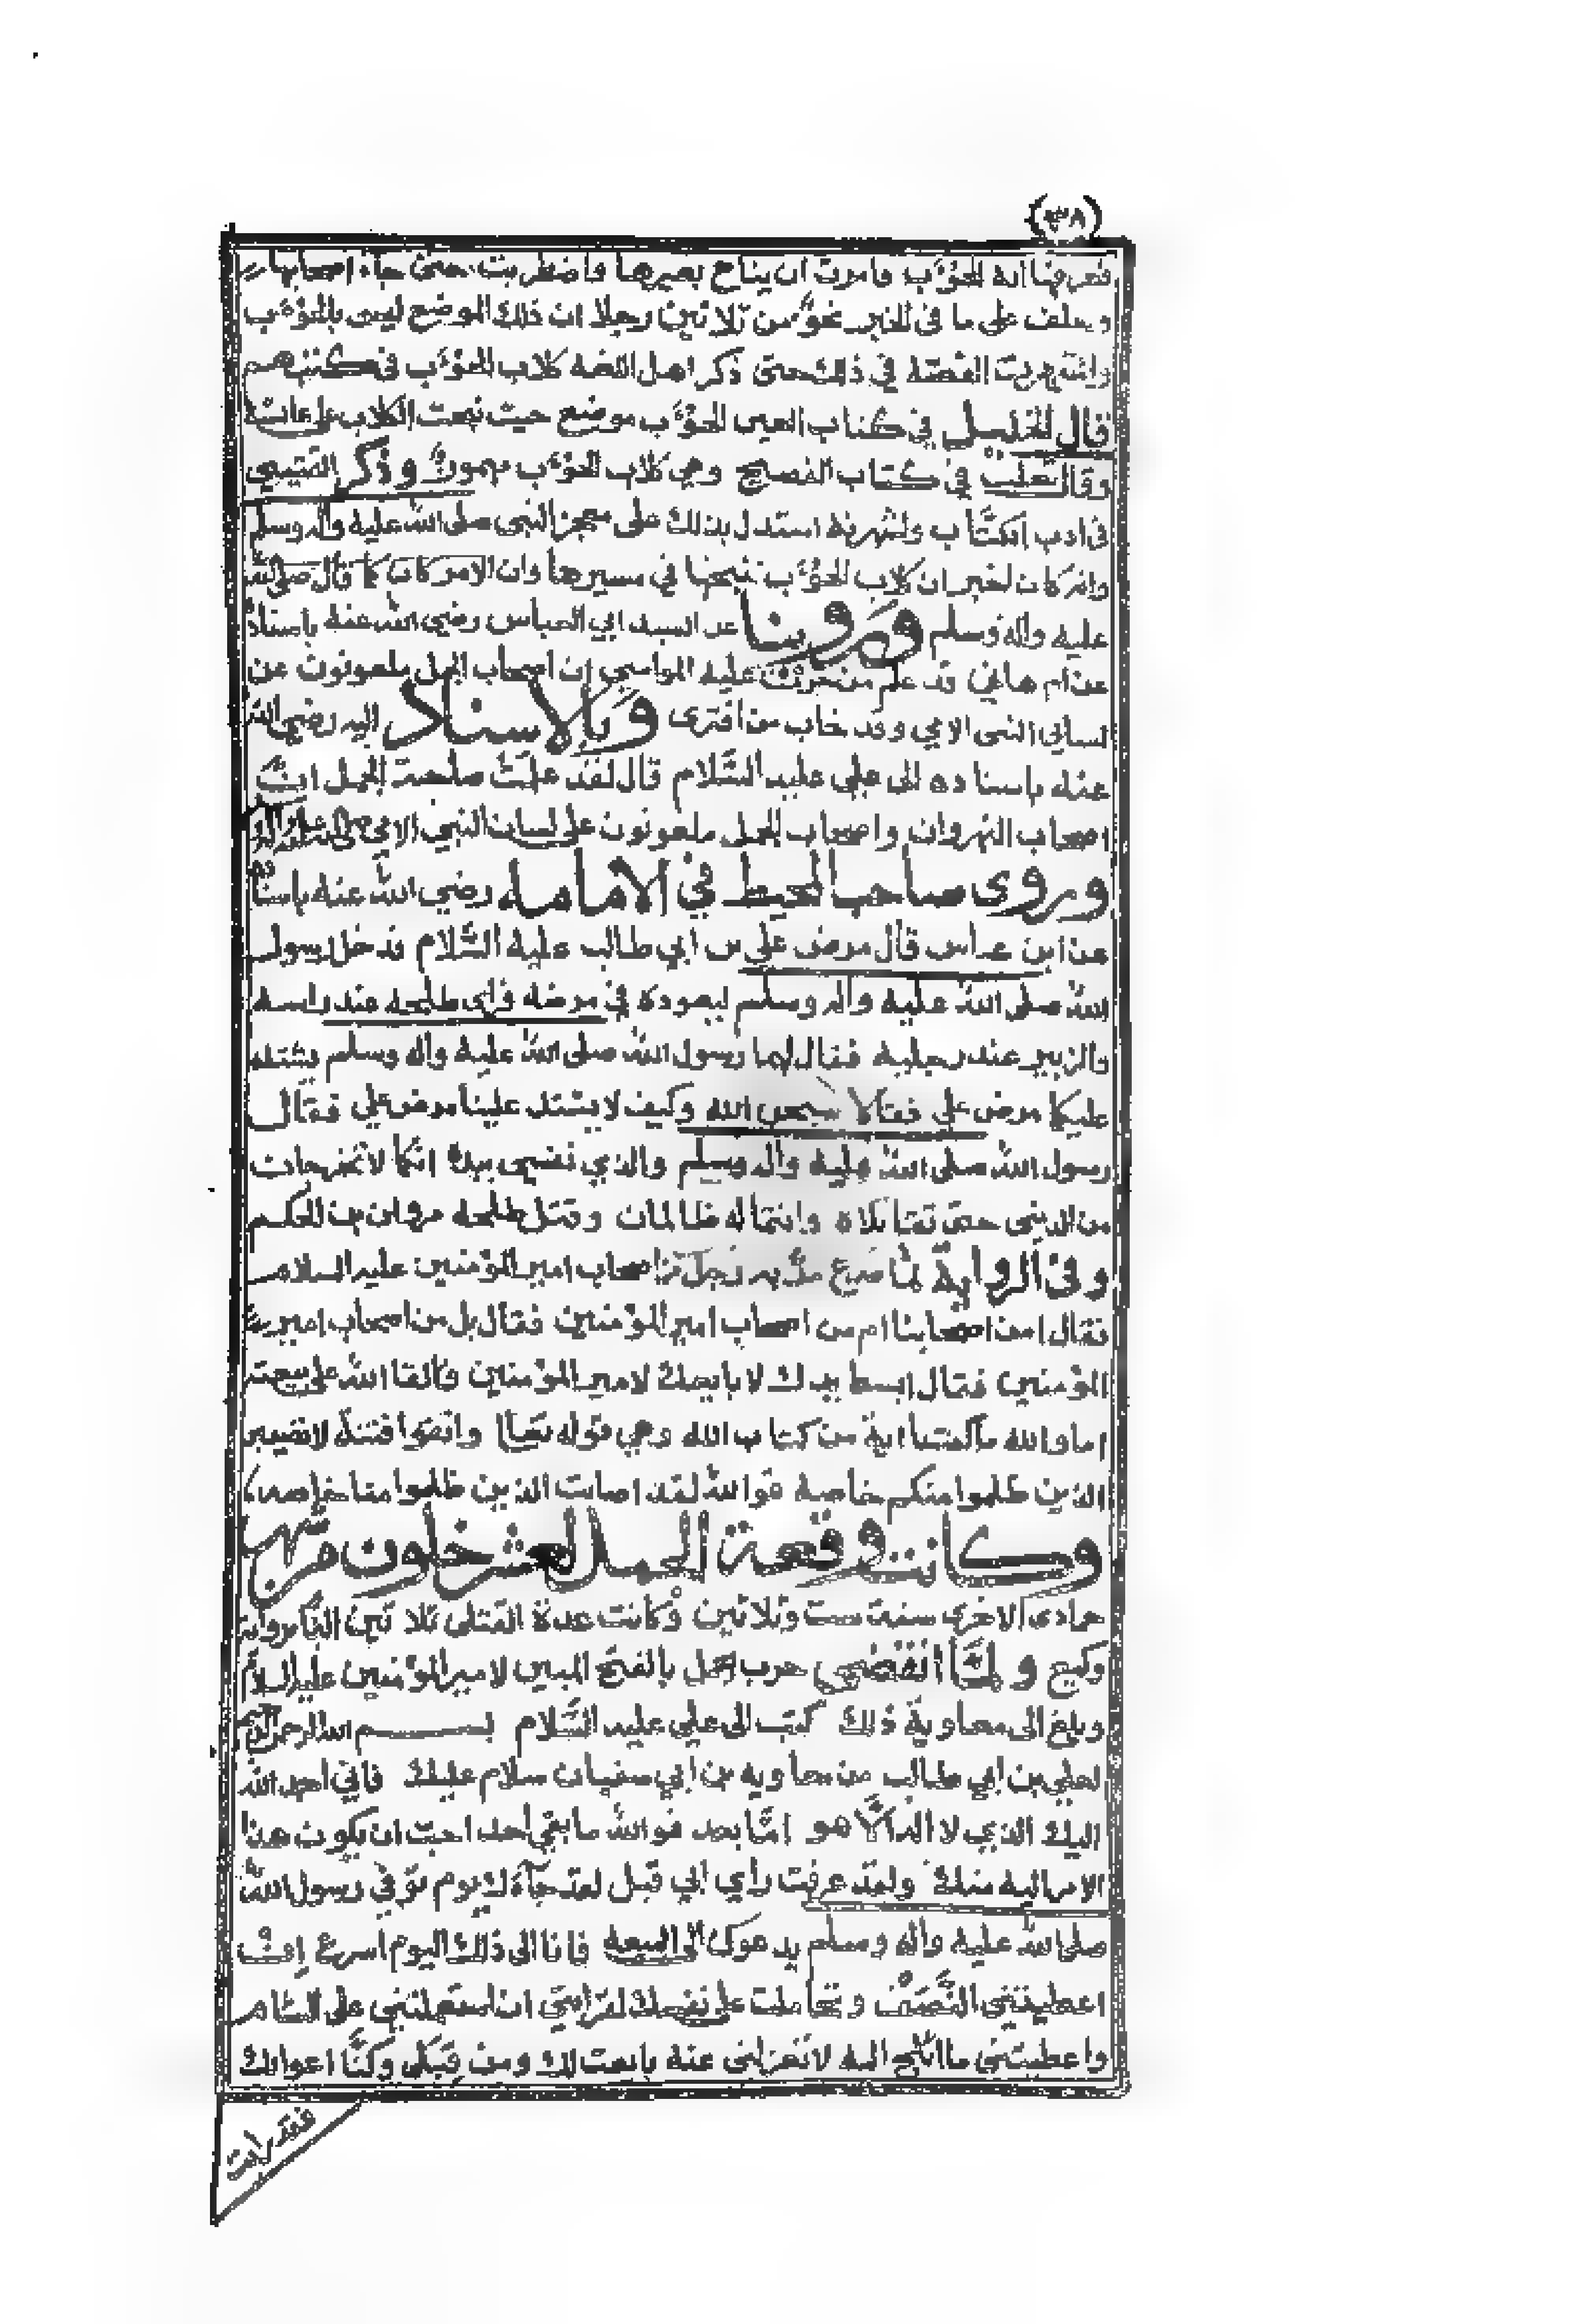 (٣٨)
فعرفنا انه الحوٴب وامرت ان يناخ بعيرها واضطربت حتى جاء اصحابها
وحلف على ما فى الخبر نحو من ثلاثين رجلا ان ذلك الموضع ليس بالحوٴب
واشتهرت القصة في ذلك حتى ذكر اهل اللغه كلاب الحوٴب فى كتبهم
قال الخليل في كتاب العين الحوٴب موضع حيث نبحت الكلاب على عائشة
وقال ثعلب في كتاب الفصيح وهي كلاب الحوٴب مهموز وذكر القتيبي
فى ادب الكتاب ولشهرته استدل بذلك على معجز النبى صلى الله عليه واله وسلم
وانه كان اخبر ان كلاب الحوٴب تنبحها في مسيرها وان الامر كان كما قال صلى الله
عليه واله وسلم وروينا عن السيد ابي العباس رضي الله عنه باسناده
عن ام هاني قد علم من جرت عليه المواسي ان اصحاب الجمل ملعونون على
لسان النبى الامي وقد خاب من افترى وبالاسناد اليه رضي الله
عنه باسناده الى علي عليه السلام قال لقد علمت صاحبة الجمل ان
اصحاب النهروان واصحاب الجمل ملعونون على لسان النبي الامي صلى الله عليه واله
وروى صاحب المحيط في الامامه رضي الله عنه باسناده
عن ابن عباس قال مرض علي بن ابي طالب عليه السلام فدخل رسول
الله صلى الله عليه واله وسلم ليعوده في مرضه وراى طلحه عند راسه
والزبير عند رجليه فقال لهما رسول الله صلى الله عليه واله وسلم يشتد
عليكما مرض علي فقالا سبحن الله وكيف لا يشتد علينا مرض علي فقال
رسول الله صلى الله عليه واله وسلم والذي نفسى بيده انكما لا تخرجان
من الدنيى حتى تقاتلاه وانتما له ظالمان وقتل طلحه مروان بن الحكم
وفى الرواية لما صرع مر به رجل من اصحاب امير المؤمنين عليه السلام
فقال امن اصحابنا ام من اصحاب امير المؤمنين فقال بل من اصحاب امير
المؤمنين فقال ابسط يدك لابايعك لامير المؤمنين والقا الله على بيعته
اما والله ما كفتنا اية من كتاب الله وهي قوله تعالى واتقوا فتنة لا تصيبن
الذين ظلموا منكم خاصة فوالله لقد اصابت الذين ظلموا منا خاصه
وكانت وقعة الجمل لعشر خلون من شهر
جمادى الاخرى سنة ست وثلاثين وكانت عدة القتلى ثلاثين الفا
وكيع ولما انقضى حرب الجمل بالفتح المبين لامير المؤمنين عليه السلام
وبلغ الى معاوية ذلك كتب الى علي عليه السلام بسم الله الرحمن الرحيم
لعلي بن ابي طالب من معاويه بن ابي سفيان سلام عليك فاني احمد الله
اليك الذي لا اله الا هو اما بعد فوالله ما بقي احد احب ان يكون هذا
الامر اليه منك ولقد عرفت راي ابي قبل لقد جاءك يوم توفي رسول الله
صلى الله عليه واله وسلم يدعوك الى البيعه فانا الى ذلك اليوم اسرع ان
اعطيتنى النصف وتحاملت على نفسك لقرابتي ان استعملتنى على الشام
واعطيتنى ما اثلج اليه لا تعزلنى عنه بايعت لك ومن قبلى وكنا اعوانك
فقد رايت